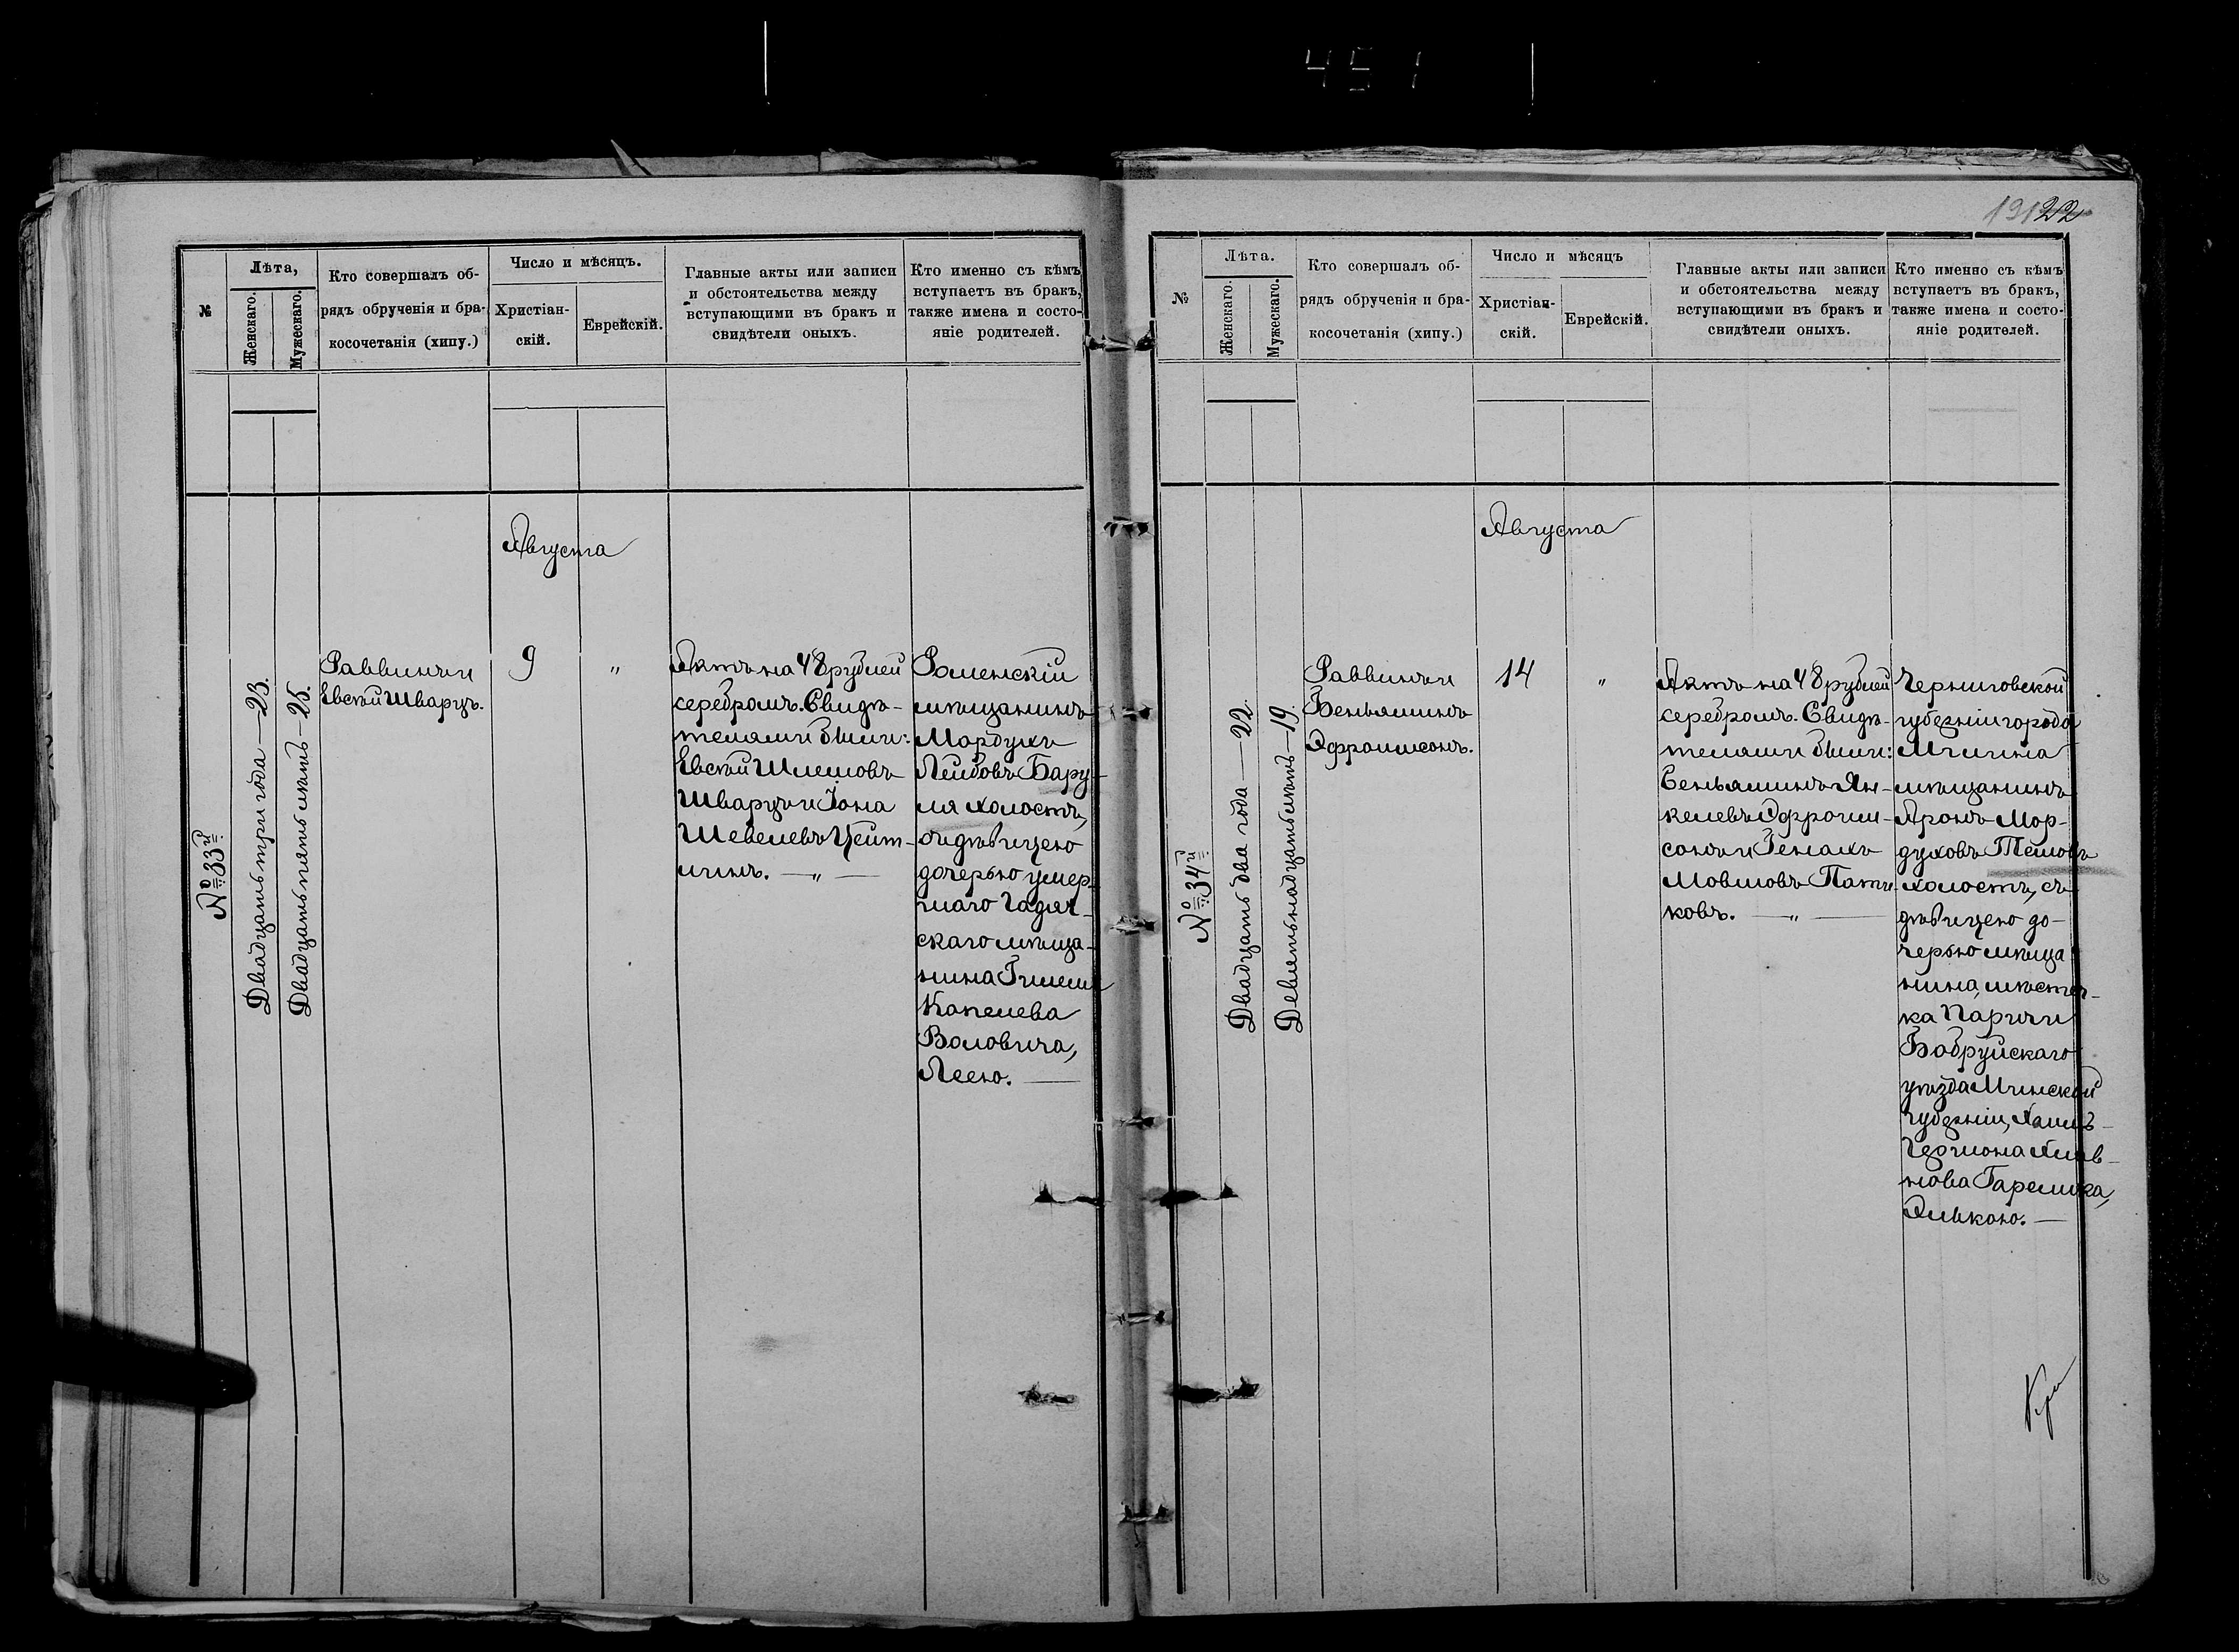 451
19122
№
Лѣта,
Женскаго.
Мужескаго.
Кто совершалъ об-
рядъ обрученія и бра-
косочетанія (хипу.)
Число и мѣсяцъ.
Христіан-
скій.
Еврейскій.
Главные акты или записи
и обстоятельства между
вступающими въ бракъ и
свидѣтели оныхъ.
Кто именно съ кѣмъ
вступаетъ въ бракъ,
также имена и состо-
яніе родителей.
Августа
№ 33й
Двадцать три года — 23.
Двадцать пять лѣтъ — 25.
Раввинъ и
Евсѣй Шварцъ.
9
"
Актъ на 48 рублей
серебромъ. Свидѣ-
телями были:
Евсѣй Шлемовъ
Шварцъ и Іона
Шевелевъ Цейт-
линъ. — " —
Роменскій
мѣщанинъ
Мордухъ
Лейбовъ Бару-
ля холостъ,
съ дѣвицею
дочерью умер-
шаго Гадяч-
скаго мѣща-
нина Гилеля
Капелева
Воловича,
Леею. —
№
Лѣта.
Женскаго.
Мужескаго.
Кто совершалъ об-
рядъ обрученія и бра-
косочетанія (хипу.)
Число и мѣсяцъ
Христіан-
скій.
Еврейскій.
Главные акты или записи
и обстоятельства между
вступающими въ бракъ и
свидѣтели оныхъ.
Кто именно съ кѣмъ
вступаетъ въ бракъ,
также имена и состо-
яніе родителей.
Августа
№ 34й
Двадцать два года — 22.
Девятьнадцать лѣтъ — 19.
Раввинъ и
Беньяминъ
Эфроимсонъ.
14
"
Актъ на 48 рублей
серебромъ. Свидѣ-
телями были:
Беньяминъ Ян-
келевъ Эфроим-
сонъ и Генахъ
Мовшовъ Пать-
ковъ. — " —
Черниговской
губерніи города
Мглина
мѣщанинъ
Аронъ Мор-
духовъ Темовъ
холостъ, съ
дѣвицею до-
черью мѣща
нина, мѣстеч-
ка Паричи
Бобруйскаго
уѣзда Минской
губерніи,
нова Гарелика,
Элькою. —